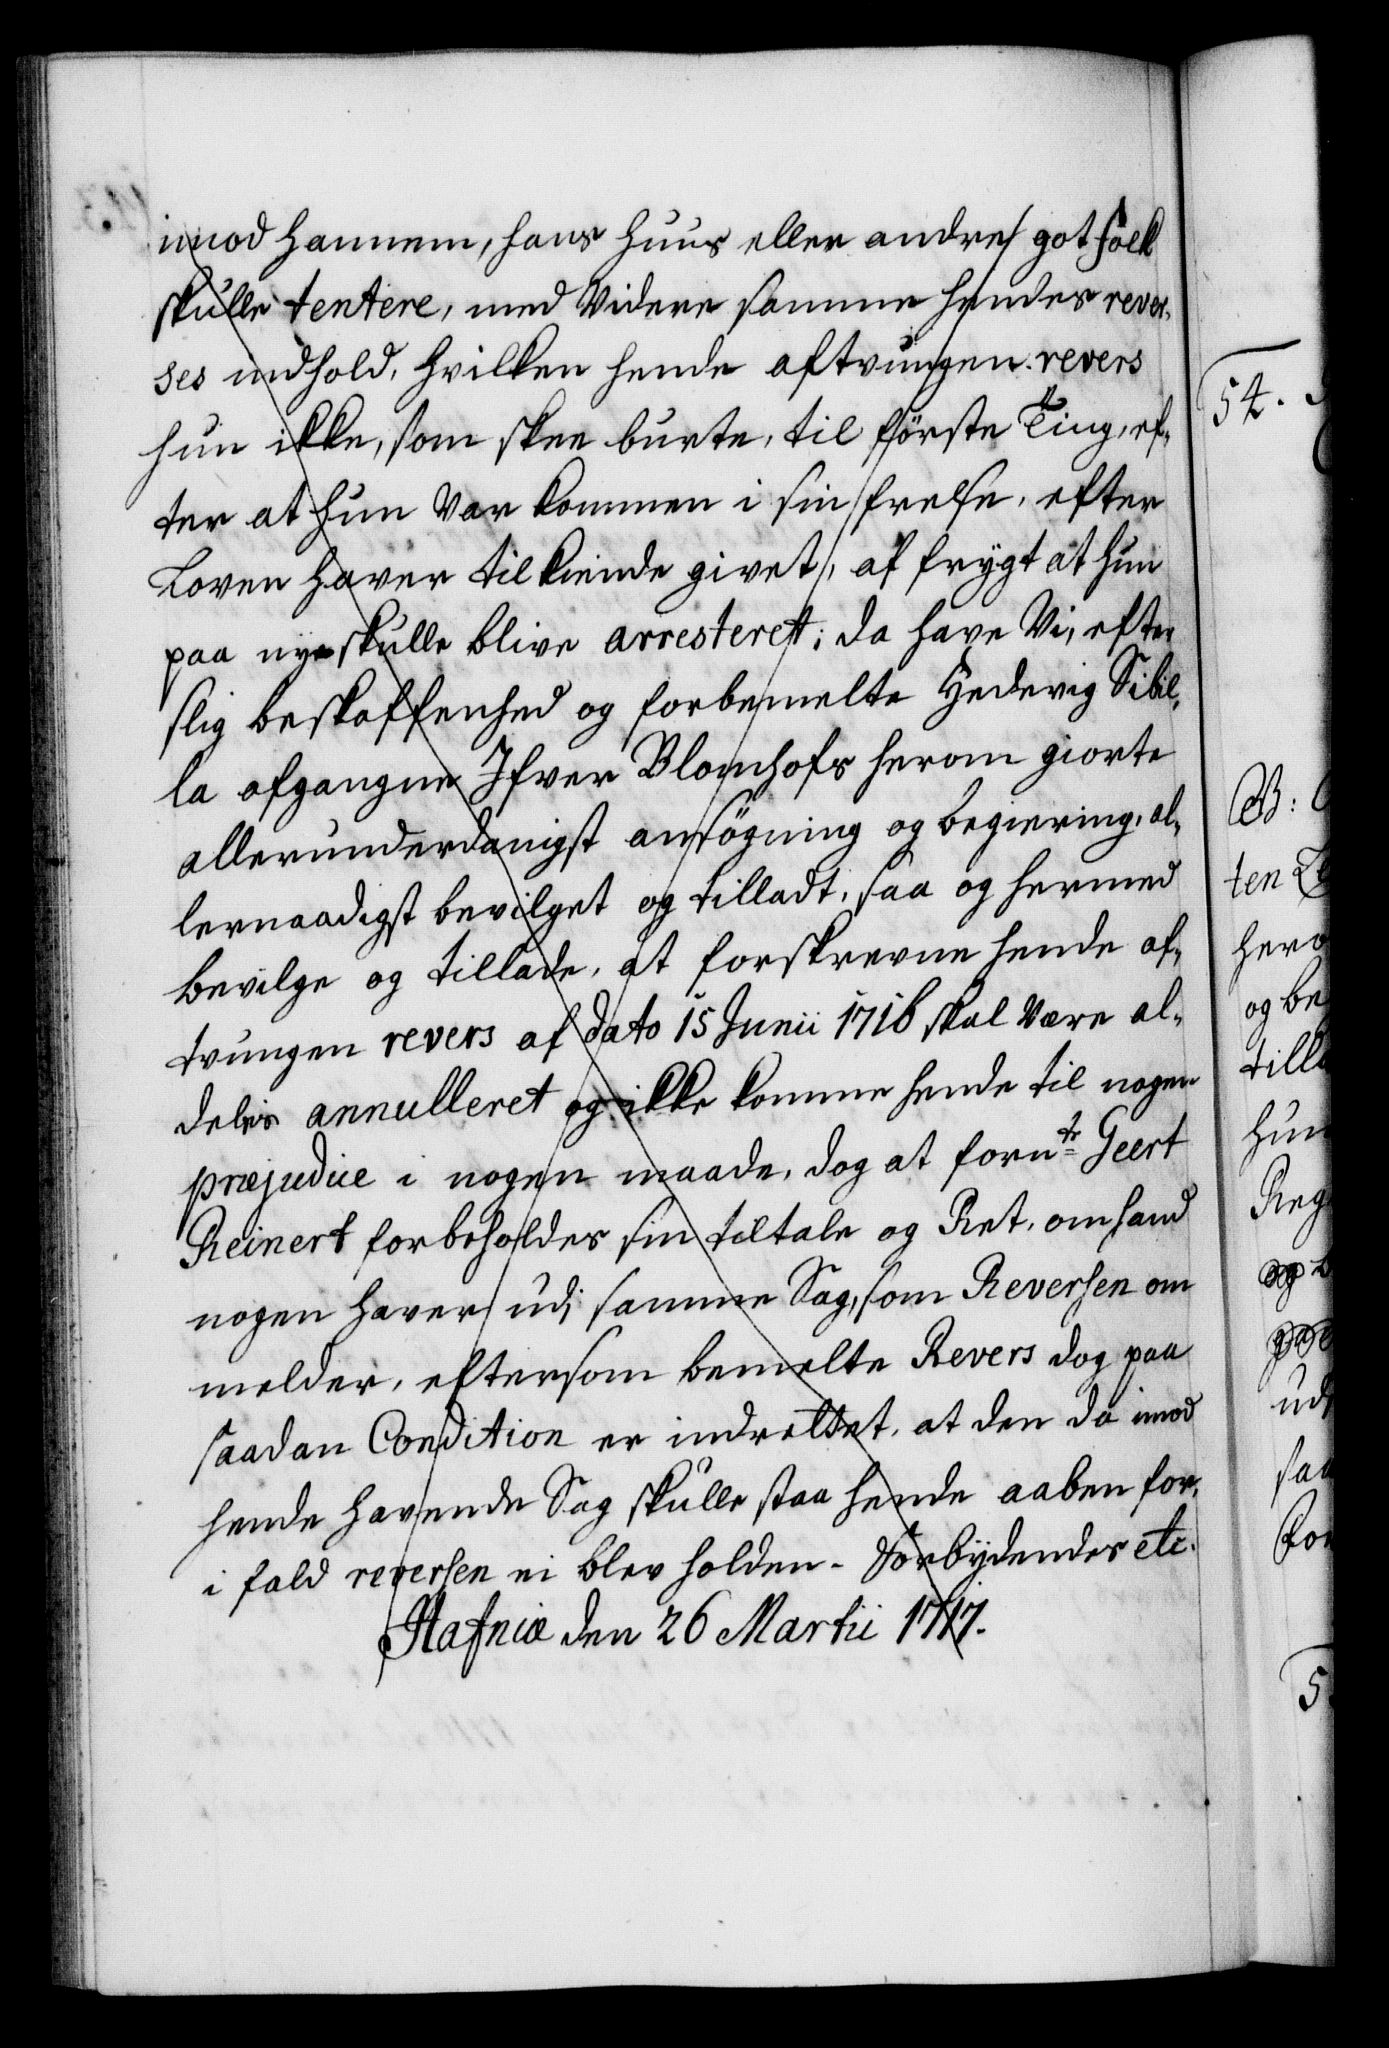 imod hannem, hans Huus eller andres got folk
skulle tentere, med Videre samme hendes rever-
ses indhold, hvilken hende aftvungen revers
hun ikke, som skee burte, til første Ting, ef-
ter at hun Var kommen i sin frelse, efter
Loven haver tilkiende givet, af frygt at hun
paa nye skulle blive arresteret; da have Vi, efter
slig beskaffenhed og forbemelte Hedevig Sibil-
la afgangne Ifver Blomhofs herom giorte
allerunderdanigst ansøgning og begiering, al-
lernaadigst bevilget og tilladt, saa og hermed
bevilge og tillade, at forskrevne hende af-
tvungen revers af dato 15 Junii 1716 skal Være al-
deles annulleret og ikke komme hende til nogen
præjudice i nogen maade, dog at fornte Geert
Reinert forbeholdes sin tiltale og Ret, om hand
nogen haver udi samme Sag, som Reversen om
melder, eftersom bemelte Revers dog paa
saadan Condition er indrettet, at den da imod
hende havende Sag skulle staa hende aaben for,
i fald reversen ei blev holden. Forbydendes etc.
Hafniæ den 26 Martii 1717.
54.
B:
ten
hero
og be
till
hun
Reg
og
ud
saa
For
5